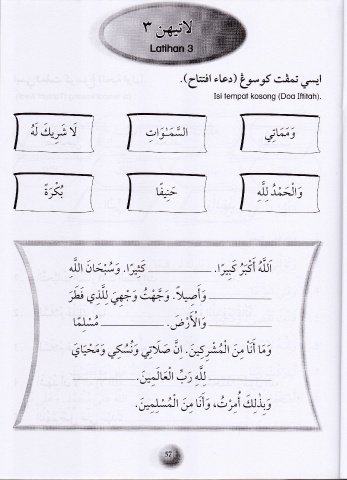 لاتيهن ٣
Latihan 3
ايسي تمڤت كوسوڠ (دعاء افتتاح).
Isi tempat kosong (Doa Iftitah).
وَمَمَاتِي
السَّمٰوَاتِ
لَا شَرِيكَ لَهُ
وَالْحَمْدُ لِلَّهِ
حَنِيفًا
بُكْرَةً
اَللَّهُ أَكْبَرُ كَبِيرًا. __________ كَثِيرًا. وَسُبْحَانَ اللَّهِ
__________ وَأَصِيلاً. وَجَّهْتُ وَجْهِيَ لِلَّذِي فَطَرَ
__________ وَالْأَرْضَ. __________ مُسْلِمًا
وَمَا أَنَا مِنَ الْمُشْرِكِينَ. اِنَّ صَلَاتِي وَنُسُكِي وَمَحْيَايَ
__________ لِلَّهِ رَبِّ الْعَالَمِينَ. __________
وَبِذٰلِكَ أُمِرْتُ، وَأَنَا مِنَ الْمُسْلِمِينَ.